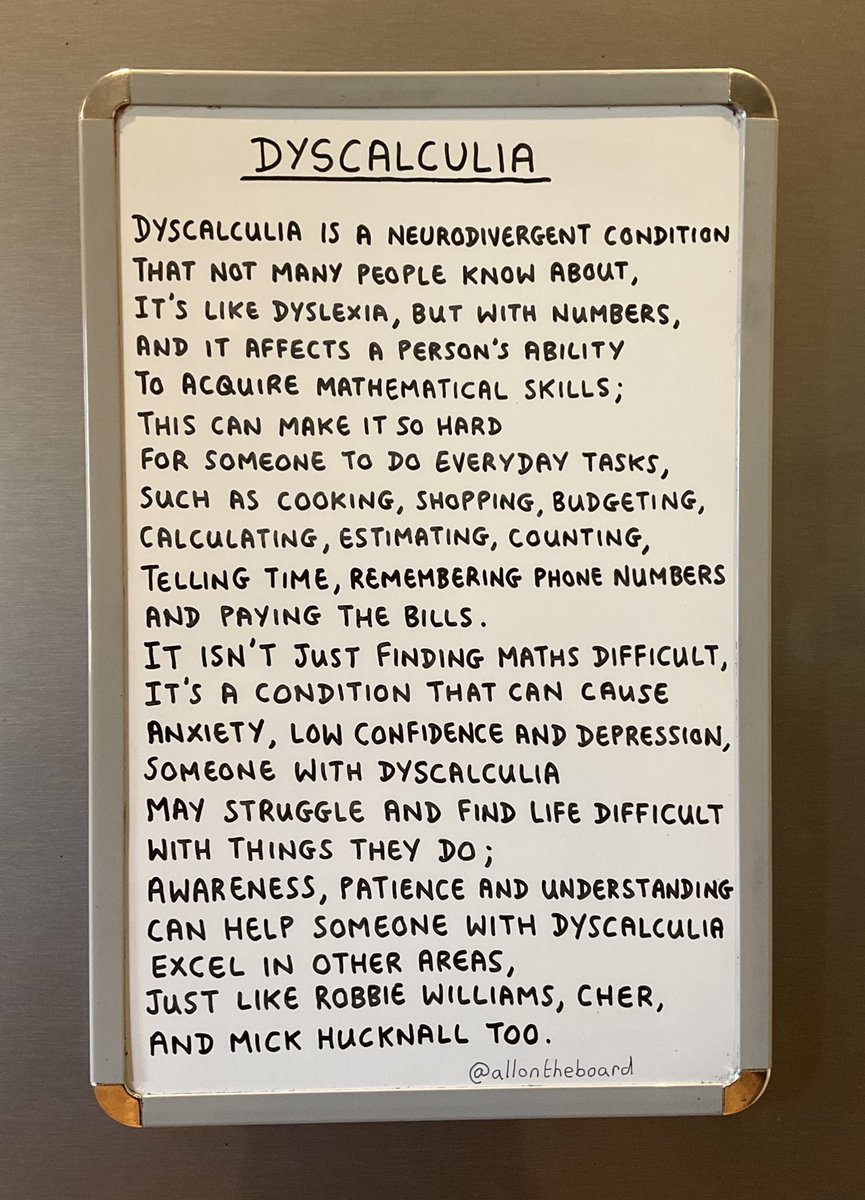 DYSCALCULIA
DYSCALCULIA IS A NEURODIVERGENT CONDITION
THAT NOT MANY PEOPLE KNOW ABOUT,
IT'S LIKE DYSLEXIA, BUT WITH NUMBERS,
AND IT AFFECTS A PERSON'S ABILITY
TO ACQUIRE MATHEMATICAL SKILLS;
THIS CAN MAKE IT SO HARD
FOR SOMEONE TO DO EVERYDAY TASKS,
SUCH AS COOKING, SHOPPING, BUDGETING,
CALCULATING, ESTIMATING, COUNTING,
TELLING TIME, REMEMBERING PHONE NUMBERS
AND PAYING THE BILLS.
IT ISN'T JUST FINDING MATHS DIFFICULT,
IT'S A CONDITION THAT CAN CAUSE
ANXIETY, LOW CONFIDENCE AND DEPRESSION,
SOMEONE WITH DYSCALCULIA
MAY STRUGGLE AND FIND LIFE DIFFICULT
WITH THINGS THEY DO;
AWARENESS, PATIENCE AND UNDERSTANDING
CAN HELP SOMEONE WITH DYSCALCULIA
EXCEL IN OTHER AREAS,
JUST LIKE ROBBIE WILLIAMS, CHER,
AND MICK HUCKNALL TOO.
@allontheboard